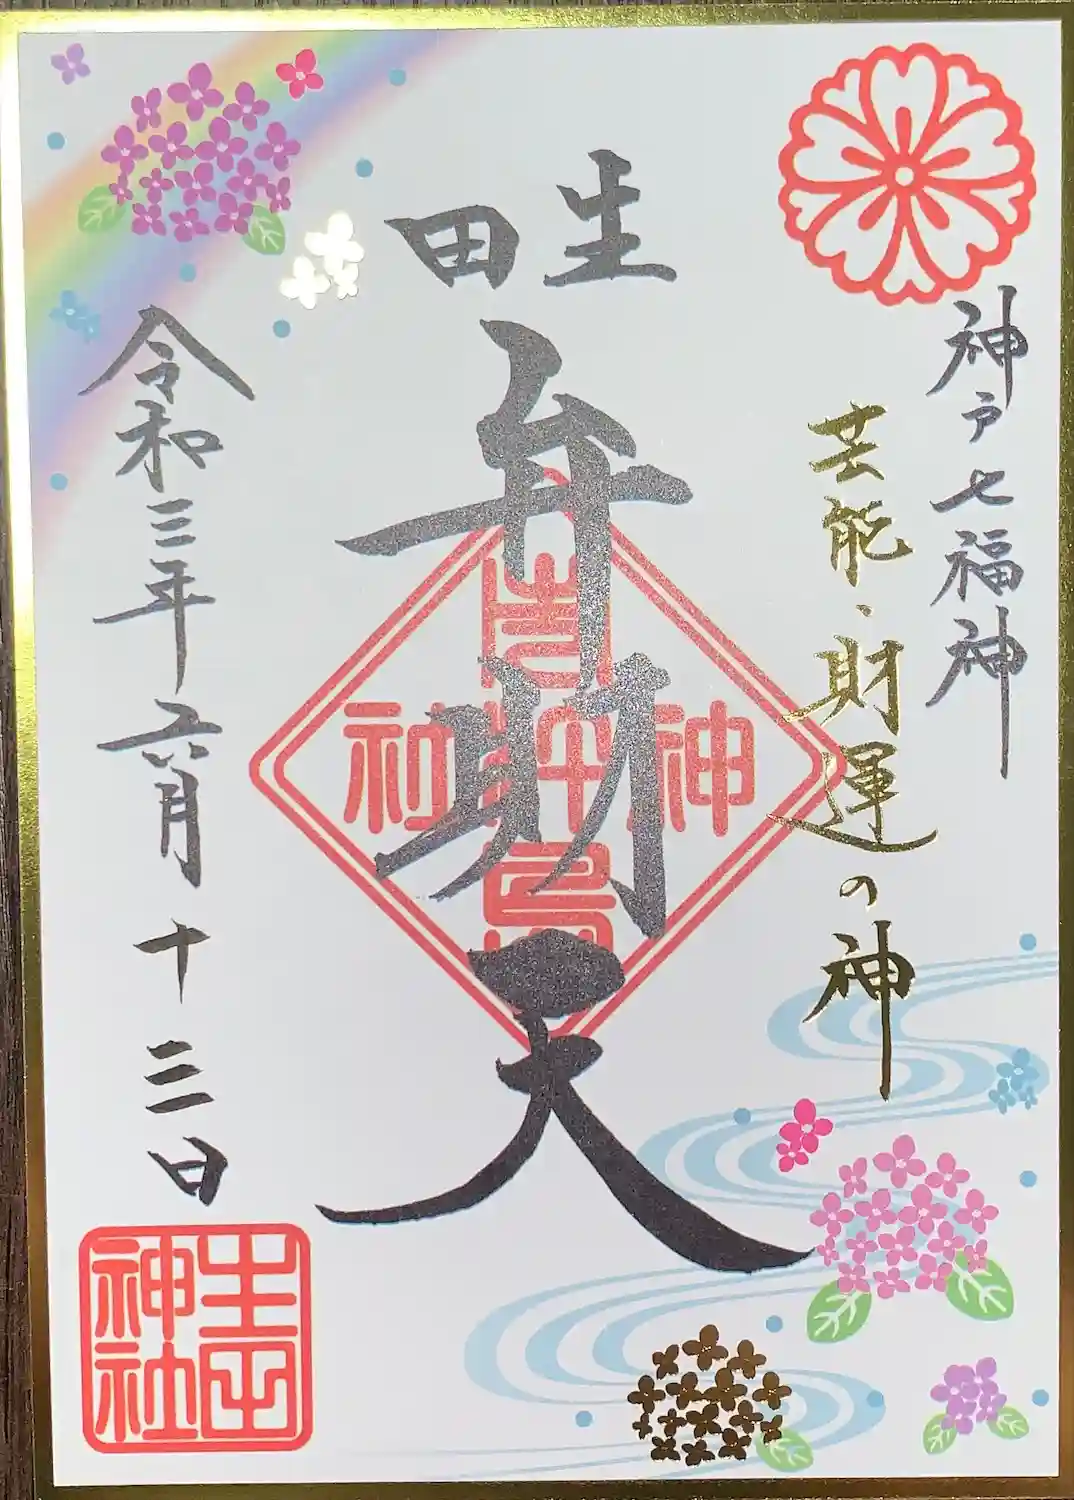 神戸七福神
芸能・財運の神
生田
弁財天
令和三年六月十三日
神社
生田
神社